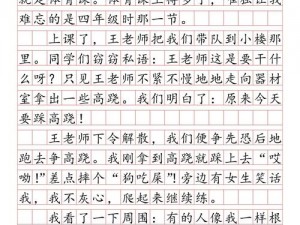 就是体育课。体育课上得多了，唯独让我
难忘的是四年级时那一节。
上课了，王老师把我们带队到小楼那
里。同学们窃窃私语：王老师这是要干什
么呀？只见王老师不紧不慢地地走向器材
室拿出一些高跷。我们明白了：原来今天
要踩高跷！
王老师下令解散，我们便争先恐后地
跑去争高跷。我刚拿到高跷就踩上去“哎
呦!”差点摔个“狗吃屎”!旁边有女生笑话
我，我不灰心，爬起来继续练。
我看了一下周围：有的人像我一样根